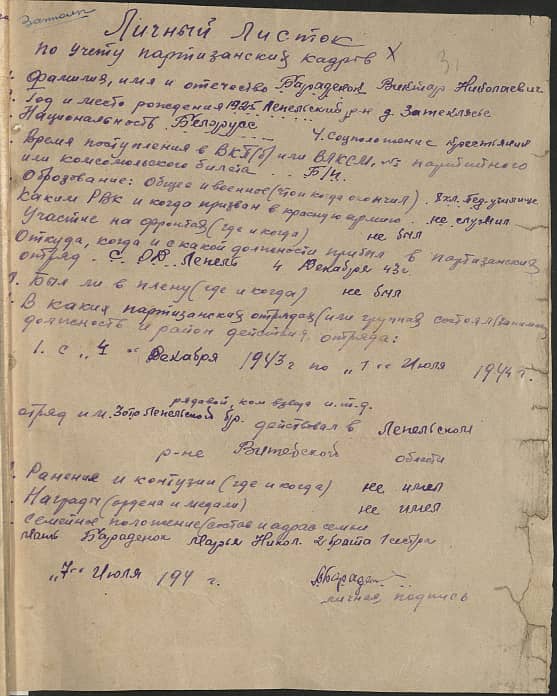 Личный Листок
по учету партизанских кадров X
Фамилия, имя и отчество Бараденок Виктор Николаевич
Год и место рождения 1925 Лепельский р-н д. Затеклясье
Национальность Белорусс 4. Соцположение крестьянин
Время поступления в ВКП(б) или ВЛКСМ, № партийного
или комсомольского билета Б/П
Образование: Общее и военное (что и когда окончил) 8 кл. Пед. училище
Каким РВК и когда призван в красную армию не служил
Участие на фронтах (где и когда) не был
Откуда, когда и с какой должности прибыл в партизанский
отряд Лепель 4 Декабря 43 г.
Был ли в плену (где и когда) не был
В каких партизанских отрядах (или группах состоял
должность и район действия отряда:
1. с "4" Декабря 1943 г по "1" Июля 1944 г.
рядовой, ком взвода и.т.д.
отряд им. Лепельской бр. действовал в Лепельском
р-не Витебской области
Ранение и контузии (где и когда) не имел
Награды (ордена и медали) не имел
Семейное положение/состав и адрес семьи
мать Бараденок Марья Никол. 2 брата 1 сестра
"7" Июля 194 г.
личная подпись